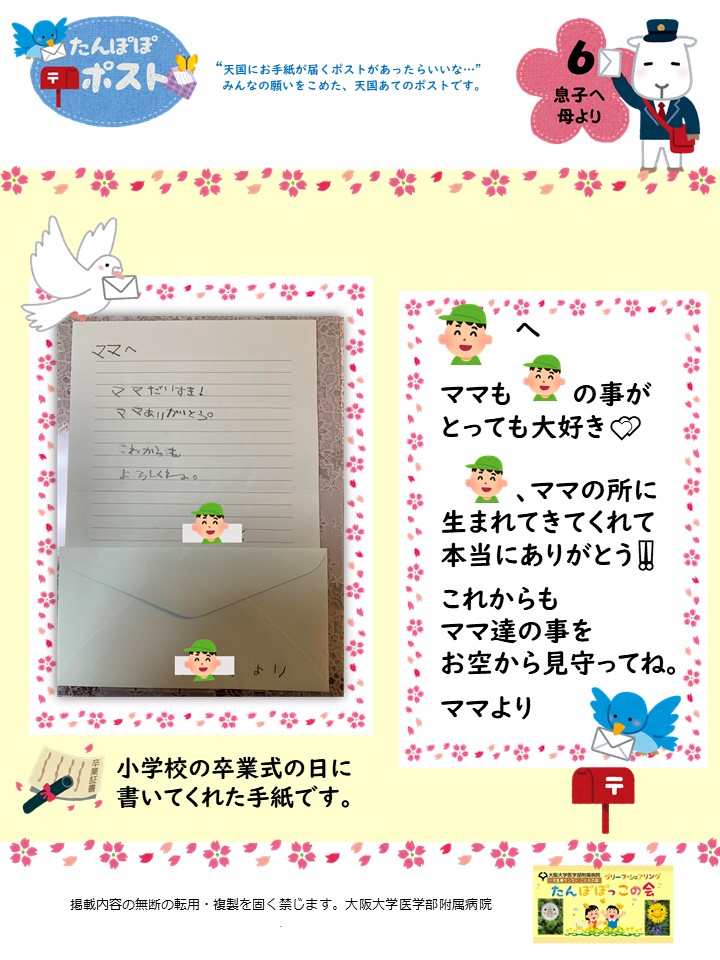 たんぽぽ
〒ポスト
“天国にお手紙が届くポストがあったらいいな…”
みんなの願いをこめた、天国あてのポストです。
6
息子へ
母より
ママへ
ママだいすき!
ママありがとう。
これからも
よろしくね。
より
へ
ママも の事が
とっても大好き
、ママの所に
生まれてきてくれて
本当にありがとう‼
これからも
ママ達の事を
お空から見守ってね。
ママより
〒
卒業証書
小学校の卒業式の日に
書いてくれた手紙です。
掲載内容の無断の転用・複製を固く禁じます。大阪大学医学部附属病院
大阪大学医学部附属病院
グリーフ・シェアリング
たんぽぽっこの会